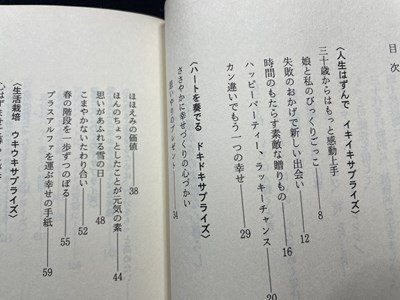 目次
〈人生はずんで　イキイキサプライズ〉
三十歳からはもっと感動上手――8
娘と私のびっくりごっこ――12
失敗のおかげで新しい出会い――16
時間のもたらす素敵な贈りもの――20
ハッピーパーティー、ラッキーチャンス――29
カン違いでもう一つの幸せ
〈ハートを奏でる　ドキドキサプライズ〉
ささやかに幸せづくりの心づかい――34
思いやりのプレゼント
ほほえみの価値――38
ほんのちょっとしたことが元気の素――44
思いがあふれる雪の日――48
こまやかないたわり合い――52
春の階段を一歩ずつのぼる――55
プラスアルファを運ぶ幸せの手紙――59
〈生活栽培　ウキウキサプライズ〉